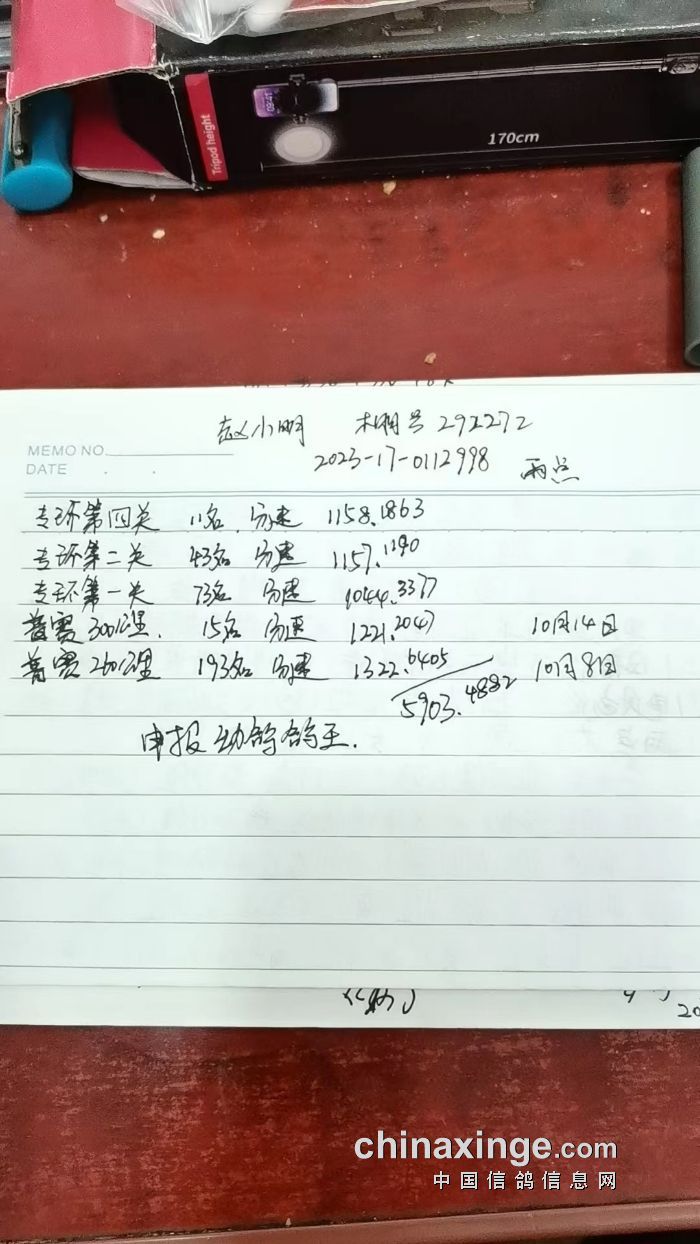 09:41
Tripod height
170cm
赵小明 棚号 292272
MEMO NO.
DATE . .
2023-17-0112998 雨点
专环第四关 11名 分速 1158.1863
专环第二关 43名 分速 1157.1190
专环第一关 73名 分速 1044.3377
普赛300公里. 15名 分速 1221.2047 10月14日
普赛260公里 193名 分速 1322.6405 10月8日
5903.4882
申报幼鸽鸽王.
chinaxinge.com
中国信鸽信息网